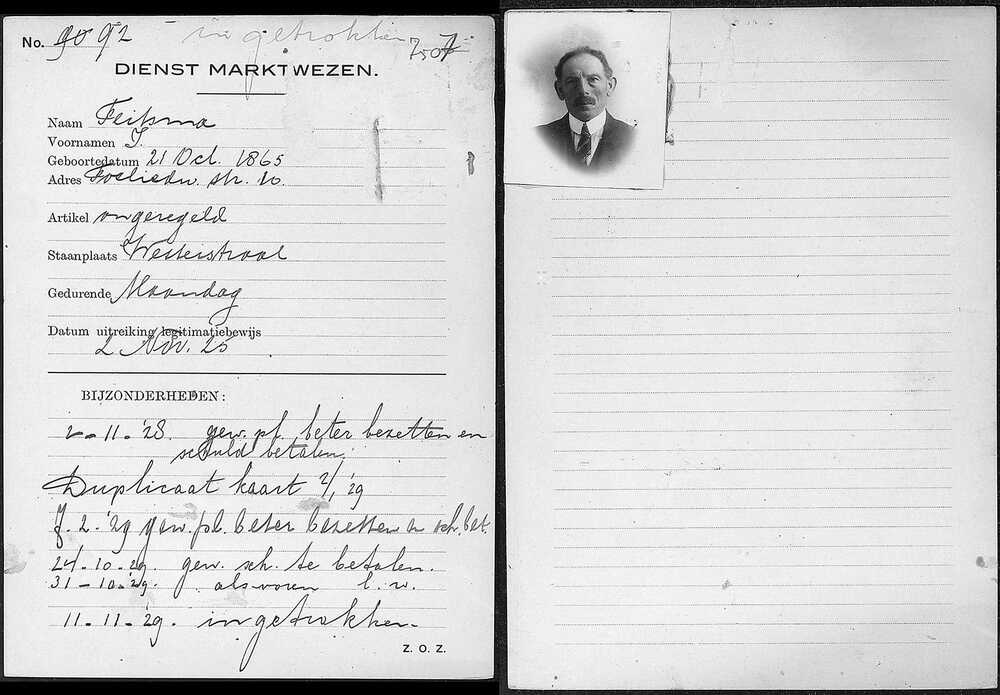 No. 9092 ingetrokken 7507
DIENST MARKTWEZEN.
Naam Feitsma
Voornamen J.
Geboortedatum 21 Oct. 1865
Adres str. 10.
Artikel ongeregeld
Staanplaats Westerstraat
Gedurende Maandag
Datum uitreiking legitimatiebewijs
2 Nov. 25
BIJZONDERHEDEN:
2-11-'28. gew. pl. beter bezetten en
schuld betalen.
Duplicaat kaart 2/1 '29
7.2.'29 gew. pl. beter bezetten en sch. bet.
24-10-29. gew. sch. te betalen.
31-10-'29. als voren l. w.
11-11-'29. ingetrokken.
Z. O. Z.